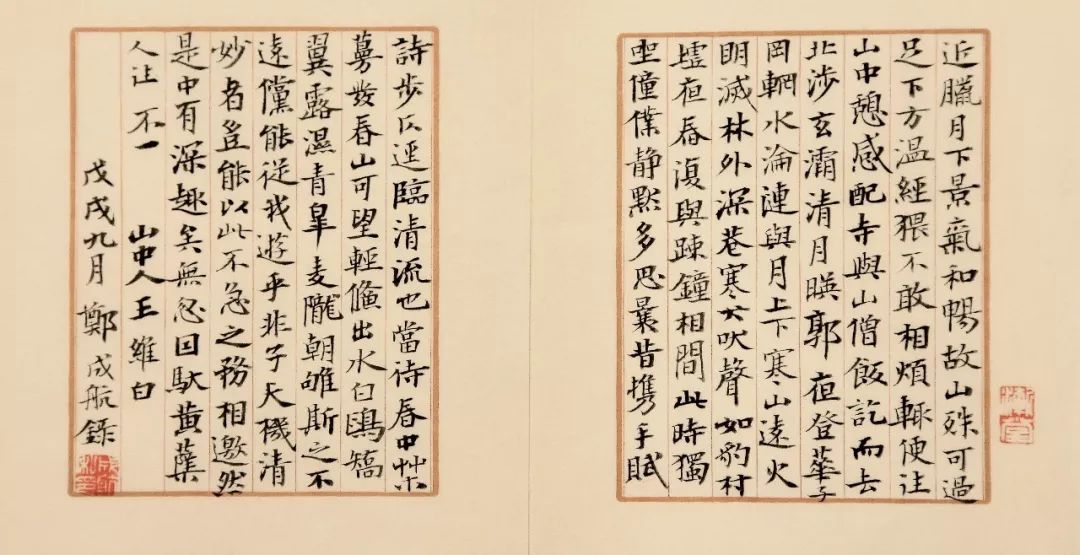 近臘月下景氣和暢故山殊可過
足下方温經猥不敢相煩輒便往
山中憩感配寺與山僧飯訖而去
北涉玄灞清月暎郭夜登華子
岡輞水淪漣與月上下寒山遠火
明滅林外深巷寒犬吠聲如豹村
墟夜舂復與踈鐘相間此時獨
坐僮僕静默多思曩昔攜手賦
詩步仄逕臨清流也當待春中艸木
蔓發春山可望輕鯈出水白鷗矯
翼露濕青皐麦隴朝雊斯之不
遠儻能從我遊乎非子天機清
妙者豈能以此不急之務相邀然
是中有深趣矣無忽因馱黃蘗
人往不一 山中人王維白
戊戌九月 鄭成航錄